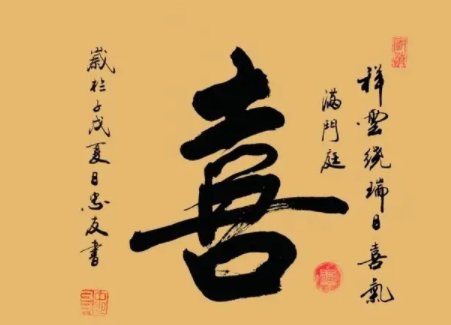 祥雲繞瑞日喜氣
滿門庭
喜
歲於子戊夏日忠友書